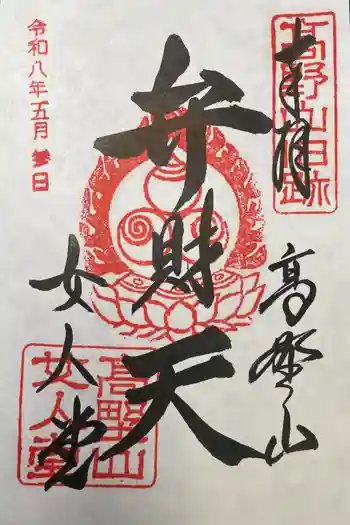 奉拝
高野山旧跡
高野山
弁財天
女人堂
高野山
女人堂
令和八年五月参日